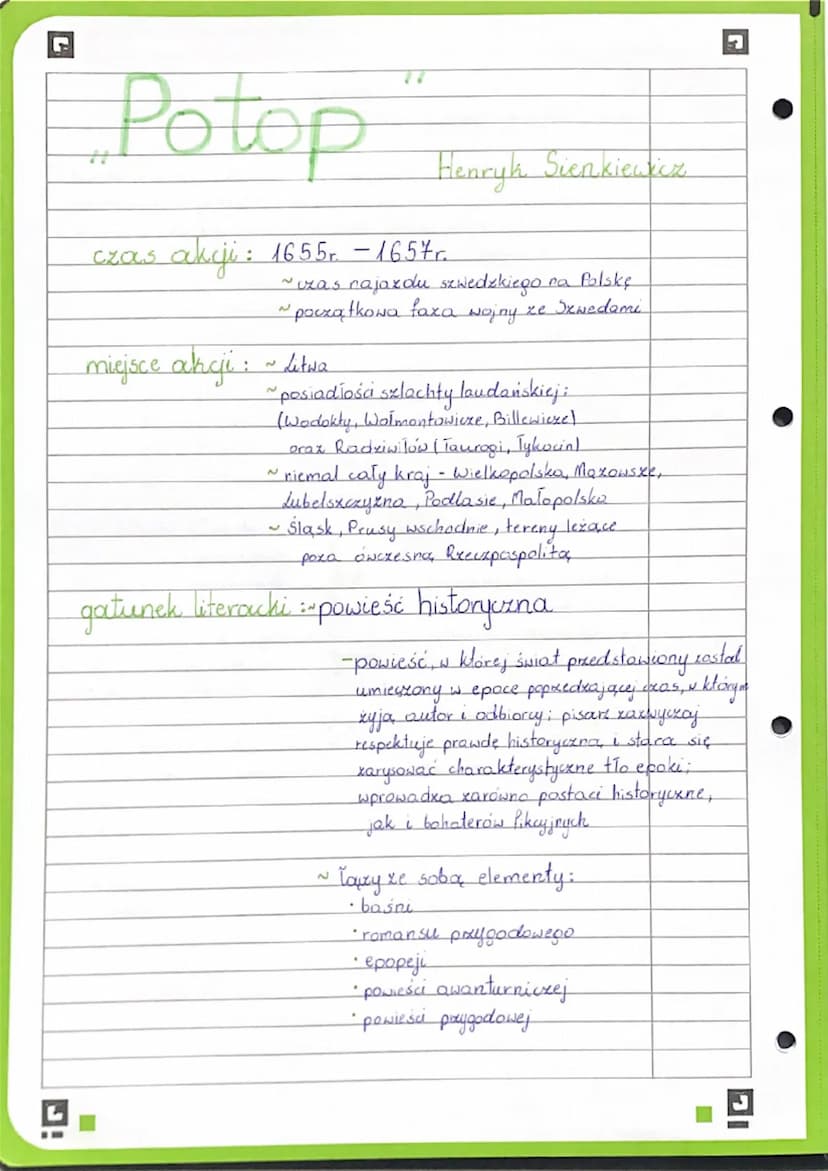 „Potop"
Henryk Sienkiewicz
czas akcji: 1655r. – 1657r.
~ czas najazdu szwedzkiego na Polskę
~ początkowa faza wojny ze Szwedami
miejsce akcji: ~ Litwa
~ posiadłości szlachty laudańskiej:
(Wodokty, Wołmontowicze, Billewicze)
oraz Radziwiłów (Taurogi, Tykocin)
~ niemal cały kraj - Wielkopolska, Mazowsze,
Lubelszczyzna, Podlasie, Małopolska
~ Śląsk, Prusy wschodnie, tereny leżące
poza ówczesną Rzeczpospolitą
gatunek literacki: ~ powieść historyczna
- powieść, w której świat przedstawiony został
umieszony w epoce poprzedzającej czas, w którym
żyją autor i odbiorcy; pisarz zazwyczaj
respektuje prawdę historyczną i stara się
zarysować charakterystyczne tło epoki;
wprowadza zarówno postaci historyczne,
jak i bohaterów fikcyjnych
~ łączy ze sobą elementy:
· baśni
· romansu przygodowego
· epopeji
· powieści awanturniczej
· powieści przygodowej